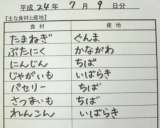 平成 24 年 7 月 9 日分
【主な食材と産地】
食材 産地
たまねぎ ぐんま
ぶたにく かながわ
にんじん ちば
じゃがいも いばらき
パセリー ちば
さつまいも ちば
れんこん いばらき